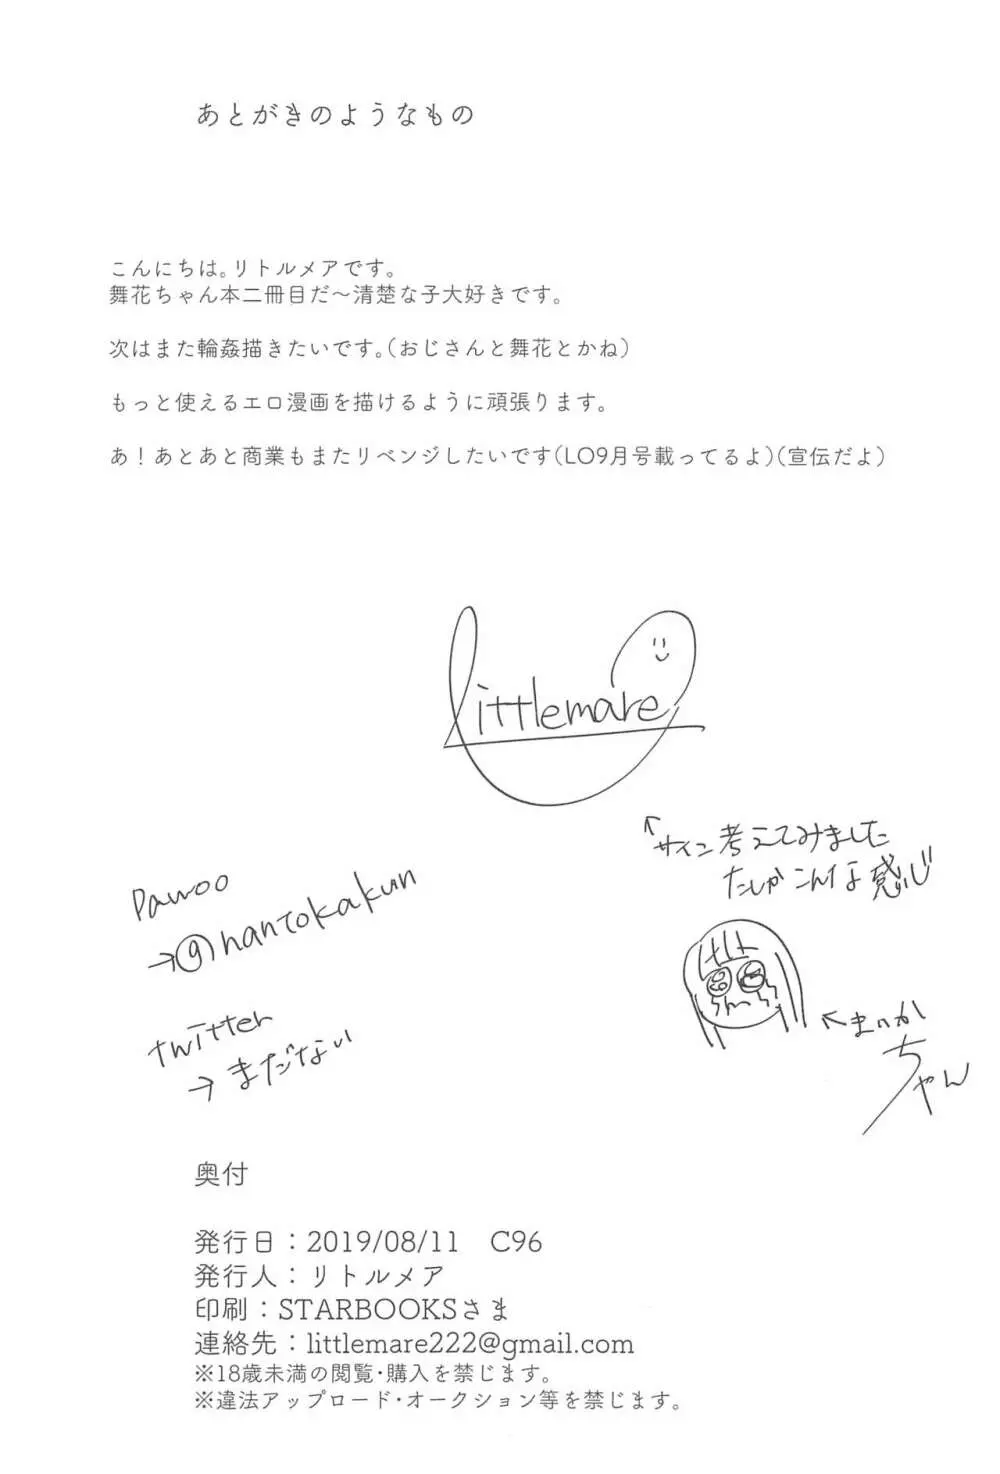 あとがきのようなもの
こんにちは。リトルメアです。
舞花ちゃん本二冊目だ～清楚な子大好きです。
次はまた輪姦描きたいです。(おじさんと舞花とかね)
もっと使えるエロ漫画を描けるように頑張ります。
あ！あとあと商業もまたリベンジしたいです(LO9月号載ってるよ)(宣伝だよ)
littlemare
↑サイン考えてみました
たしかこんな感じ
Pawoo
→@nantokakun
twitter
→まだない
←まいか
ちゃん
奥付
発行日：2019/08/11 C96
発行人：リトルメア
印刷：STARBOOKSさま
連絡先：littlemare222@gmail.com
※18歳未満の閲覧・購入を禁じます。
※違法アップロード・オークション等を禁じます。